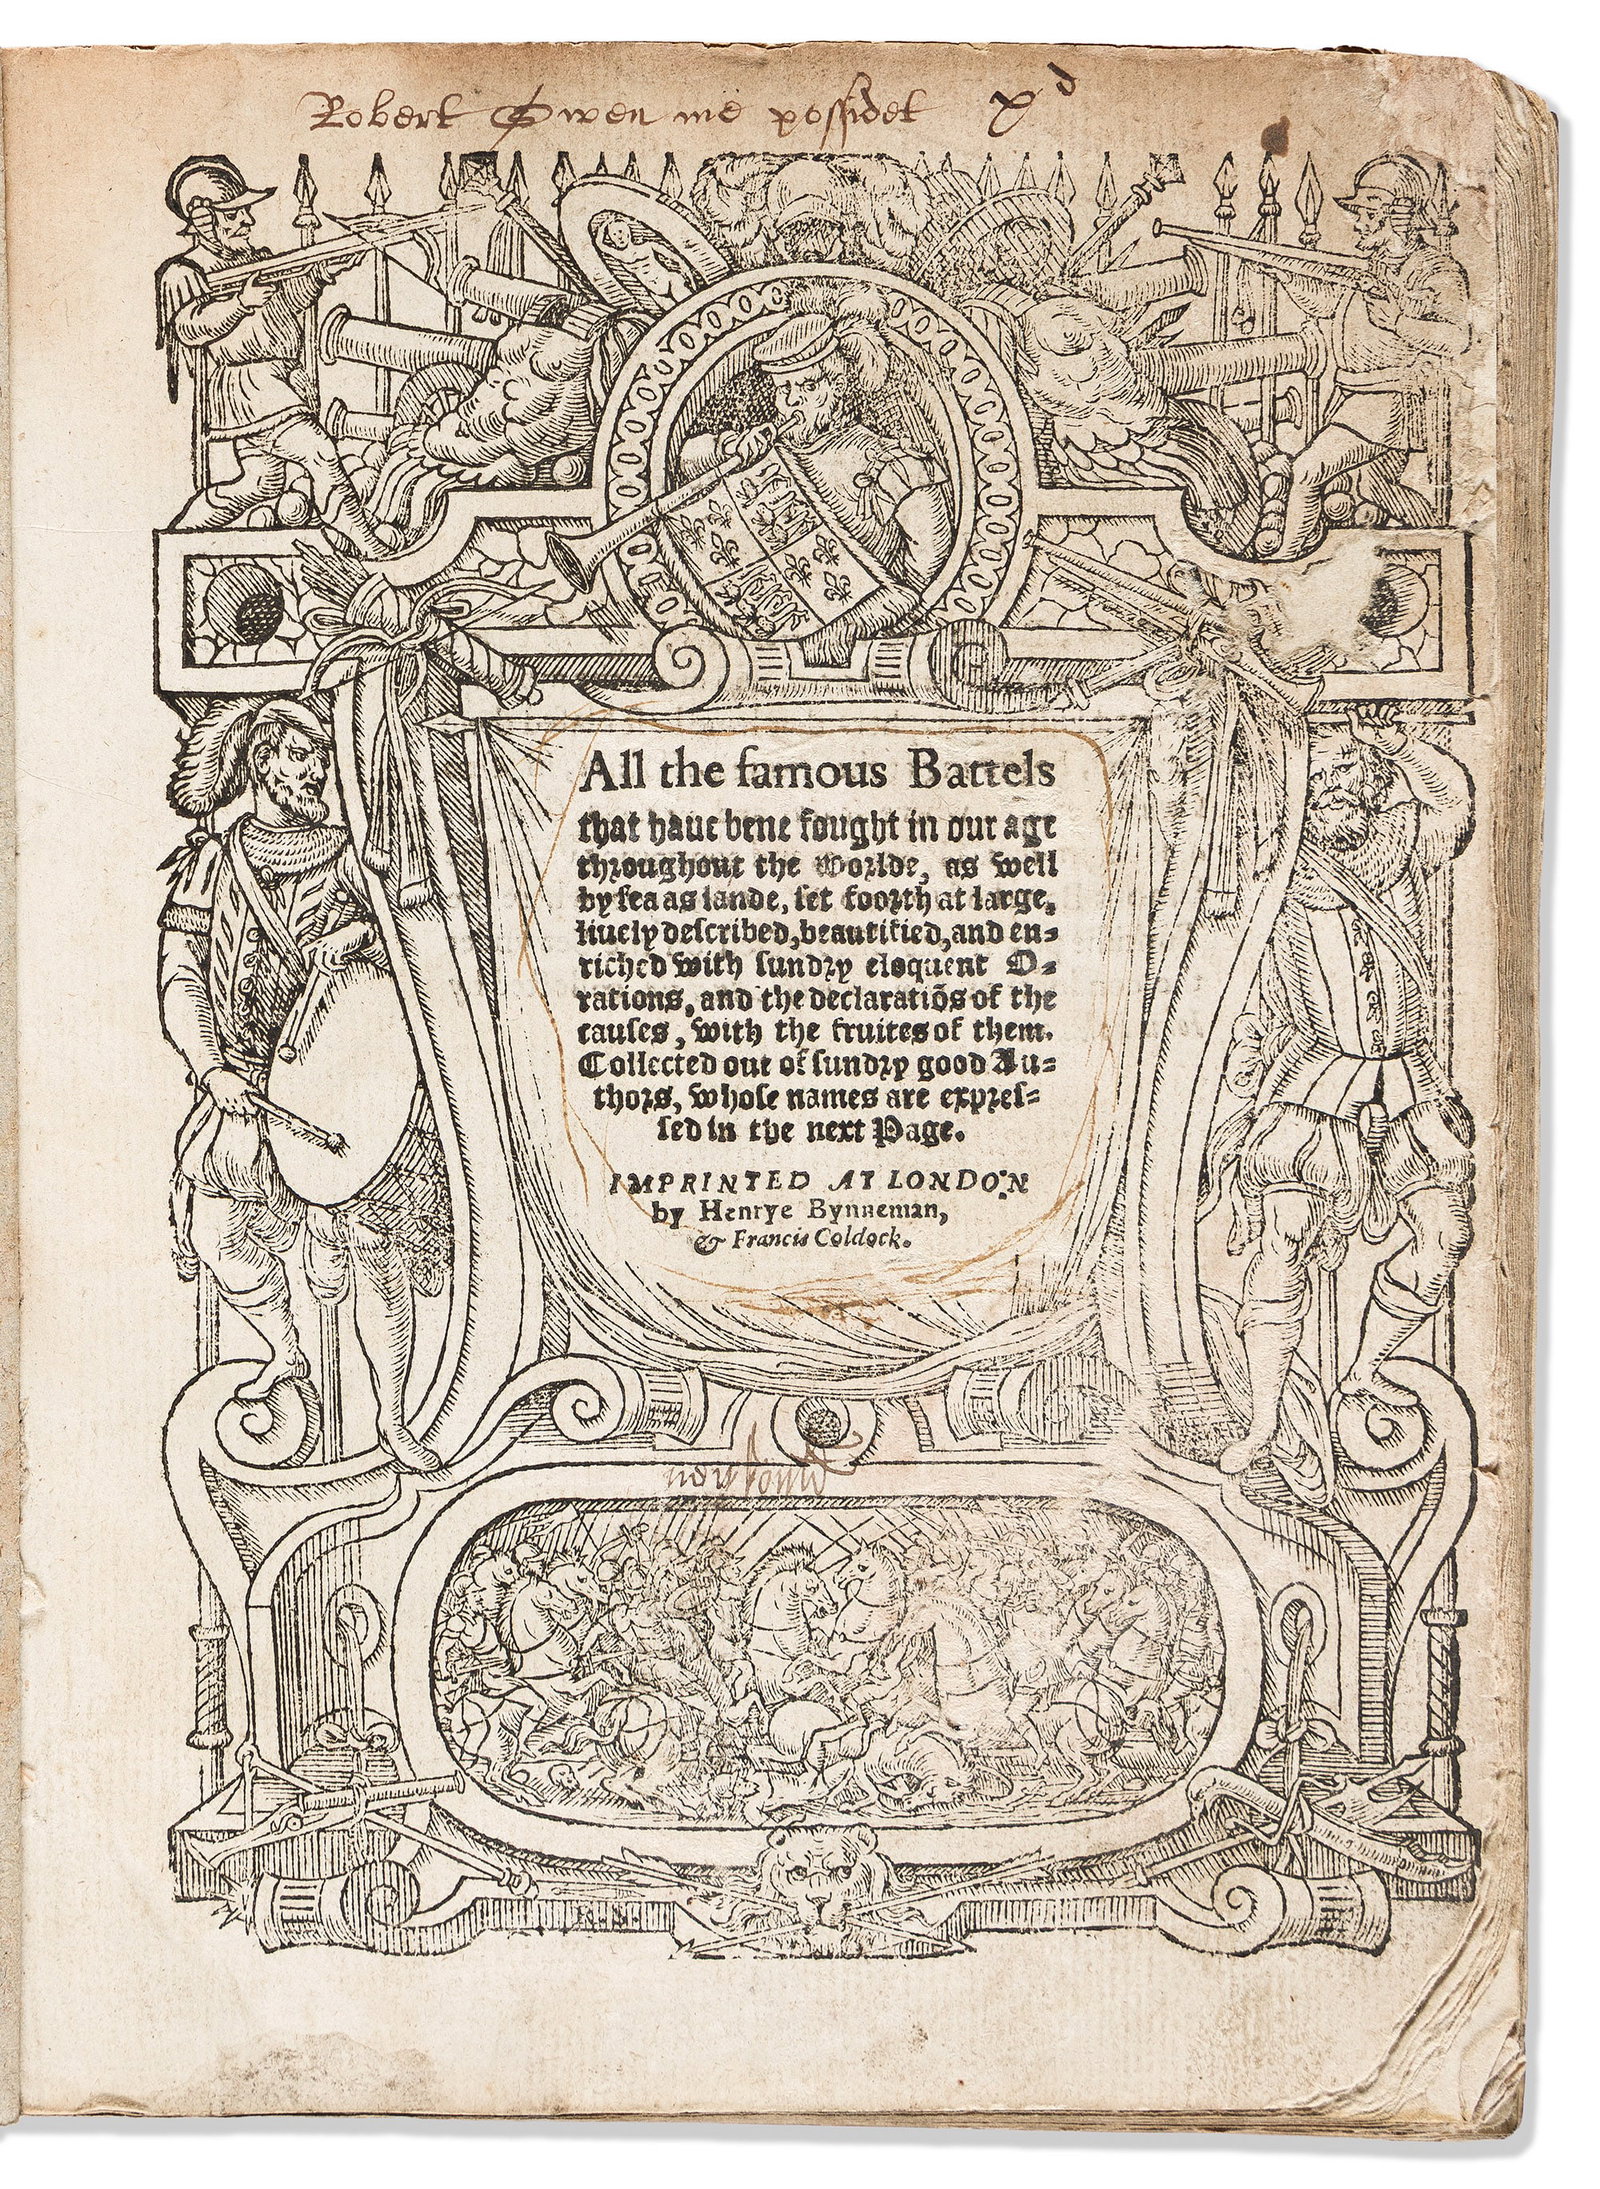 Robert Owen me possidet
All the famous Battels
that haue bene fought in our age
throughout the worlde, as well
by sea as lande, set foorth at large,
liuely described, beautified, and en=
riched with sundry eloquent O=
rations, and the declaratiõs of the
causes, with the fruites of them.
Collected out of sundry good Au=
thors, whose names are expres=
sed in the next Page.
IMPRINTED AT LONDON
by Henrye Bynneman,
& Francis Coldock.